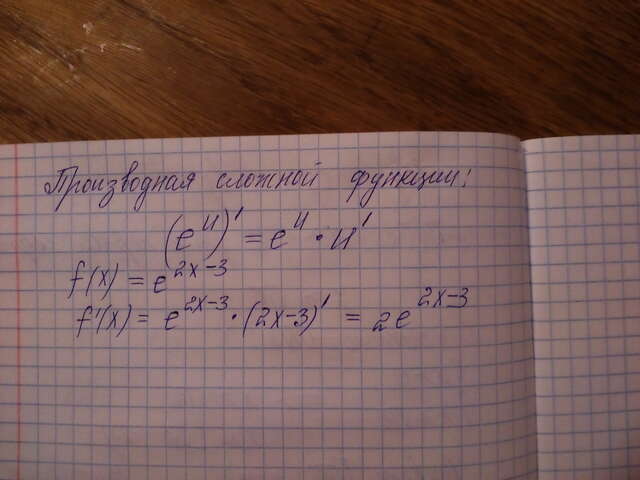 Производная сложной функции:
(e^u)' = e^u · u'
f(x) = e^{2x-3}
f'(x) = e^{2x-3} · (2x-3)' = 2e^{2x-3}